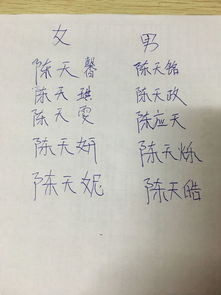 女 男
陈天馨 陈天铭
陈天琪 陈天政
陈天雯 陈应天
陈天妍 陈天烁
陈天妮 陈天皓